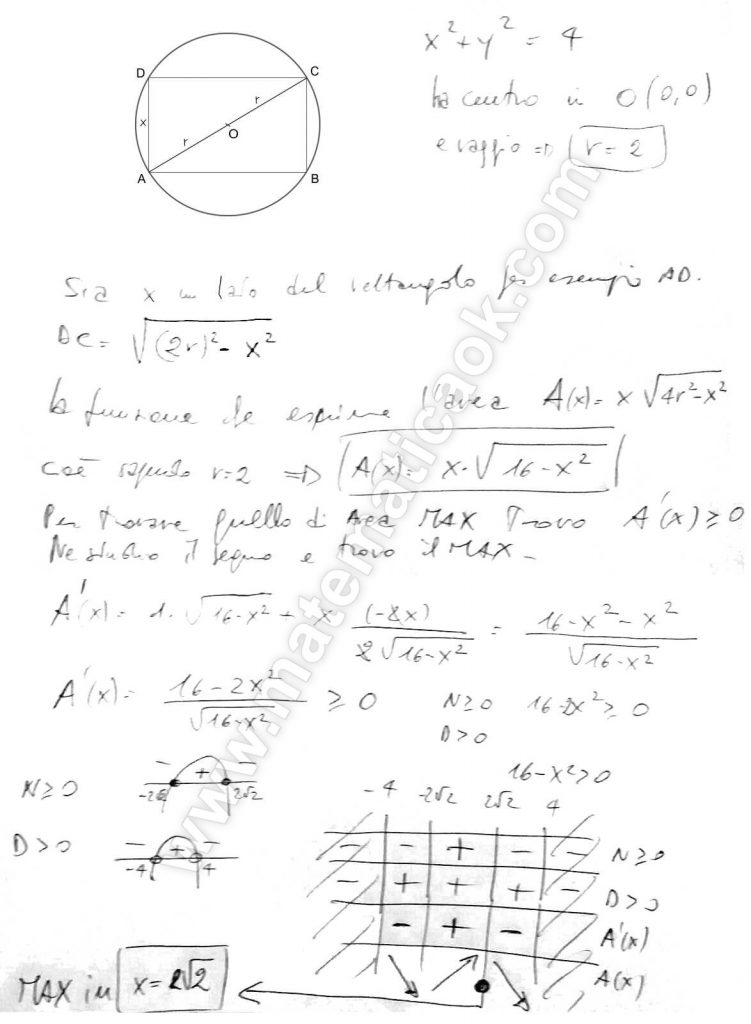 x² + y² = 4
ha centro in O(0,0)
e raggio ⇒ r = 2
D
C
r
x
O
r
A
B
Sia x un lato del rettangolo per esempio AD.
DC = √((2r)² - x²)
la funzione che esprime l'area A(x) = x √(4r²-x²)
cioè sapendo r=2 ⇒ A(x) = x·√(16-x²)
Per trovare quello di Area MAX Trovo A'(x) ≥ 0
Ne studio il segno e trovo il MAX -
A'(x) = 1·√(16-x²) + x (-2x)/(2√(16-x²)) = (16-x²-x²)/√(16-x²)
A'(x) = (16-2x²)/√(16-x²) ≥ 0 N≥0 16-2x² ≥ 0
D>0
16-x²>0
N≥0 - + - -2√2 2√2
D>0 - + - -4 4
-4 -2√2 2√2 4
- - + - - N≥0
- + + + - D>0
- + - A'(x)
A(x)
MAX in x = 2√2
www.matematicaok.com